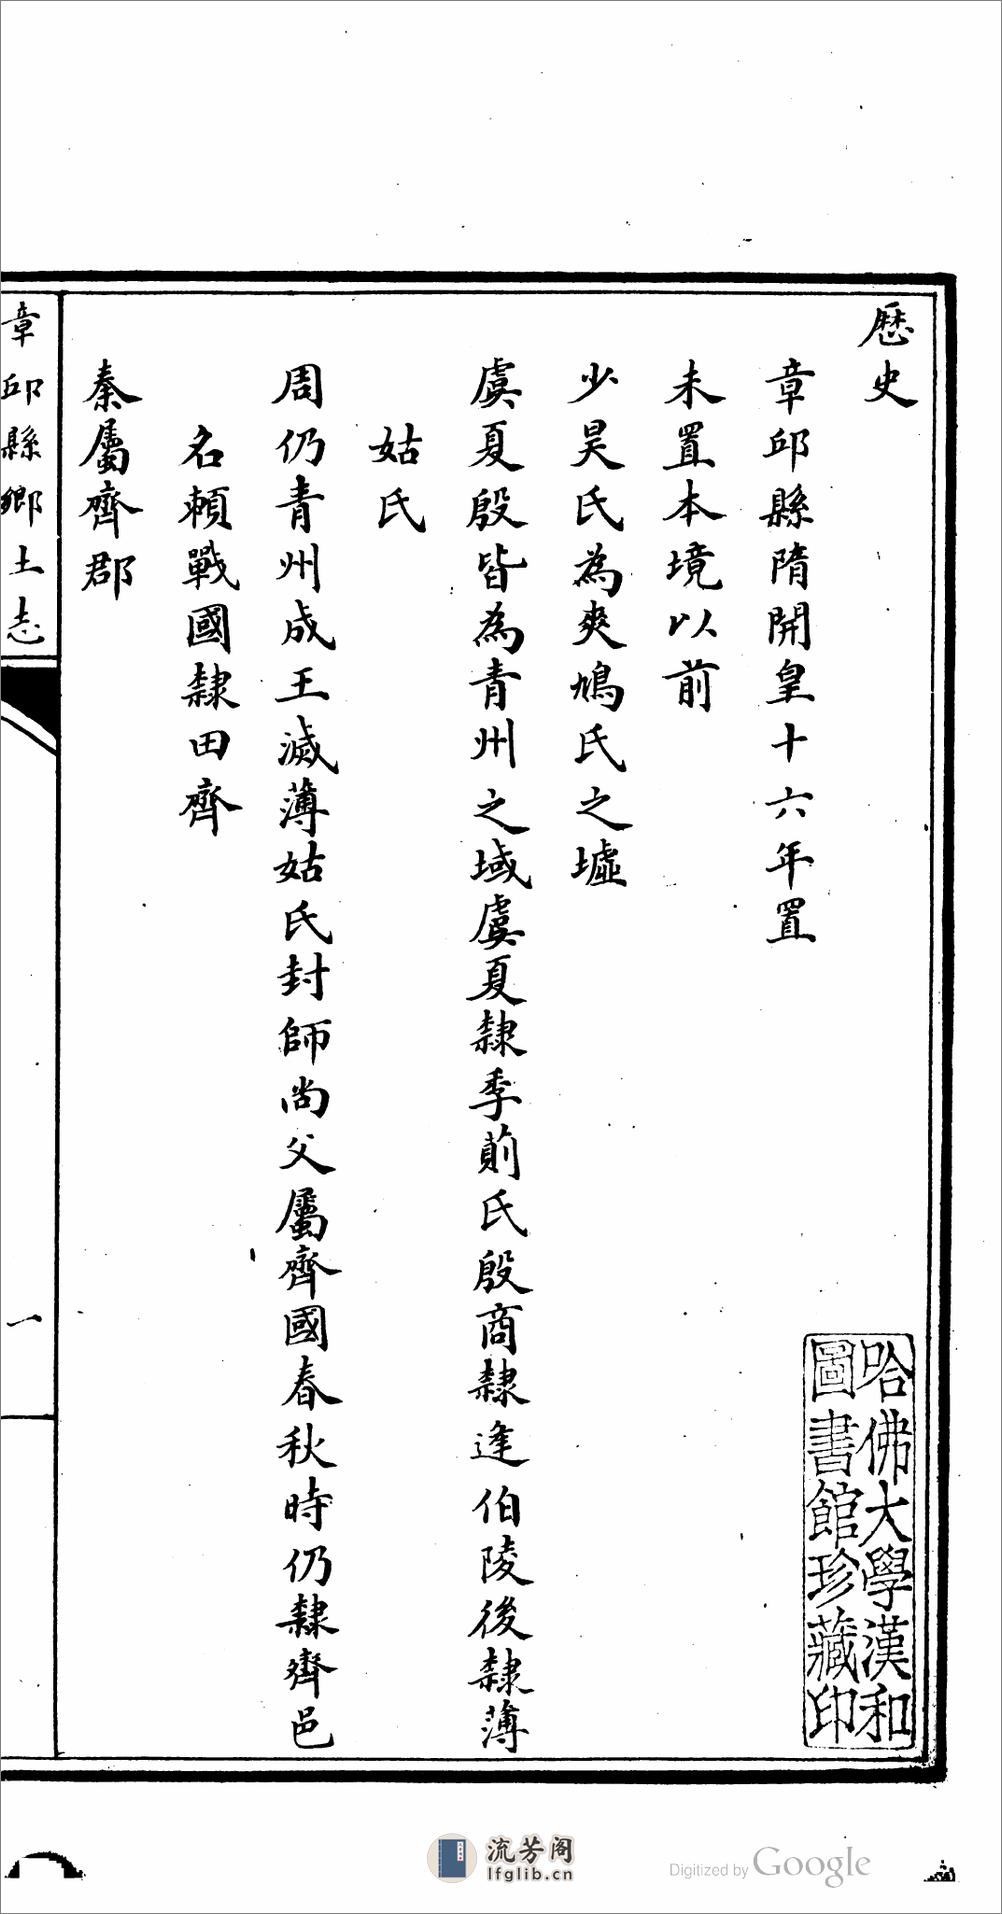 歷史
章邱縣隋開皇十六年置
未置本境以前
少昊氏為爽鳩氏之墟
虞夏殷皆為青州之域虞夏隸季萴氏殷商隸逄伯陵後隸薄
姑氏
周仍青州成王滅薄姑氏封師尚父屬齊國春秋時仍隸齊邑
名賴戰國隸田齊
秦屬齊郡
章邱縣鄉土志
一
哈佛大學漢和
圖書館珍藏印
流芳阁
lfglib.cn
Digitized by Google